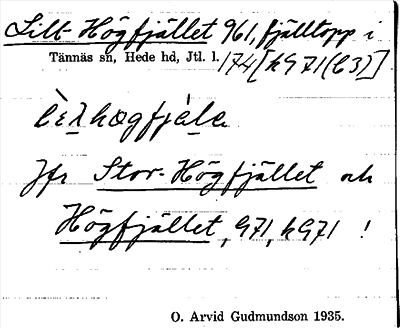 Lill-Högfjället 961, fjälltopp i
Tännäs sn, Hede hd, Jtl. l. 174 [h971(b3)]
Jfr Stor-Högfjället och
Högfjället, 971, h971 !
O. Arvid Gudmundson 1935.